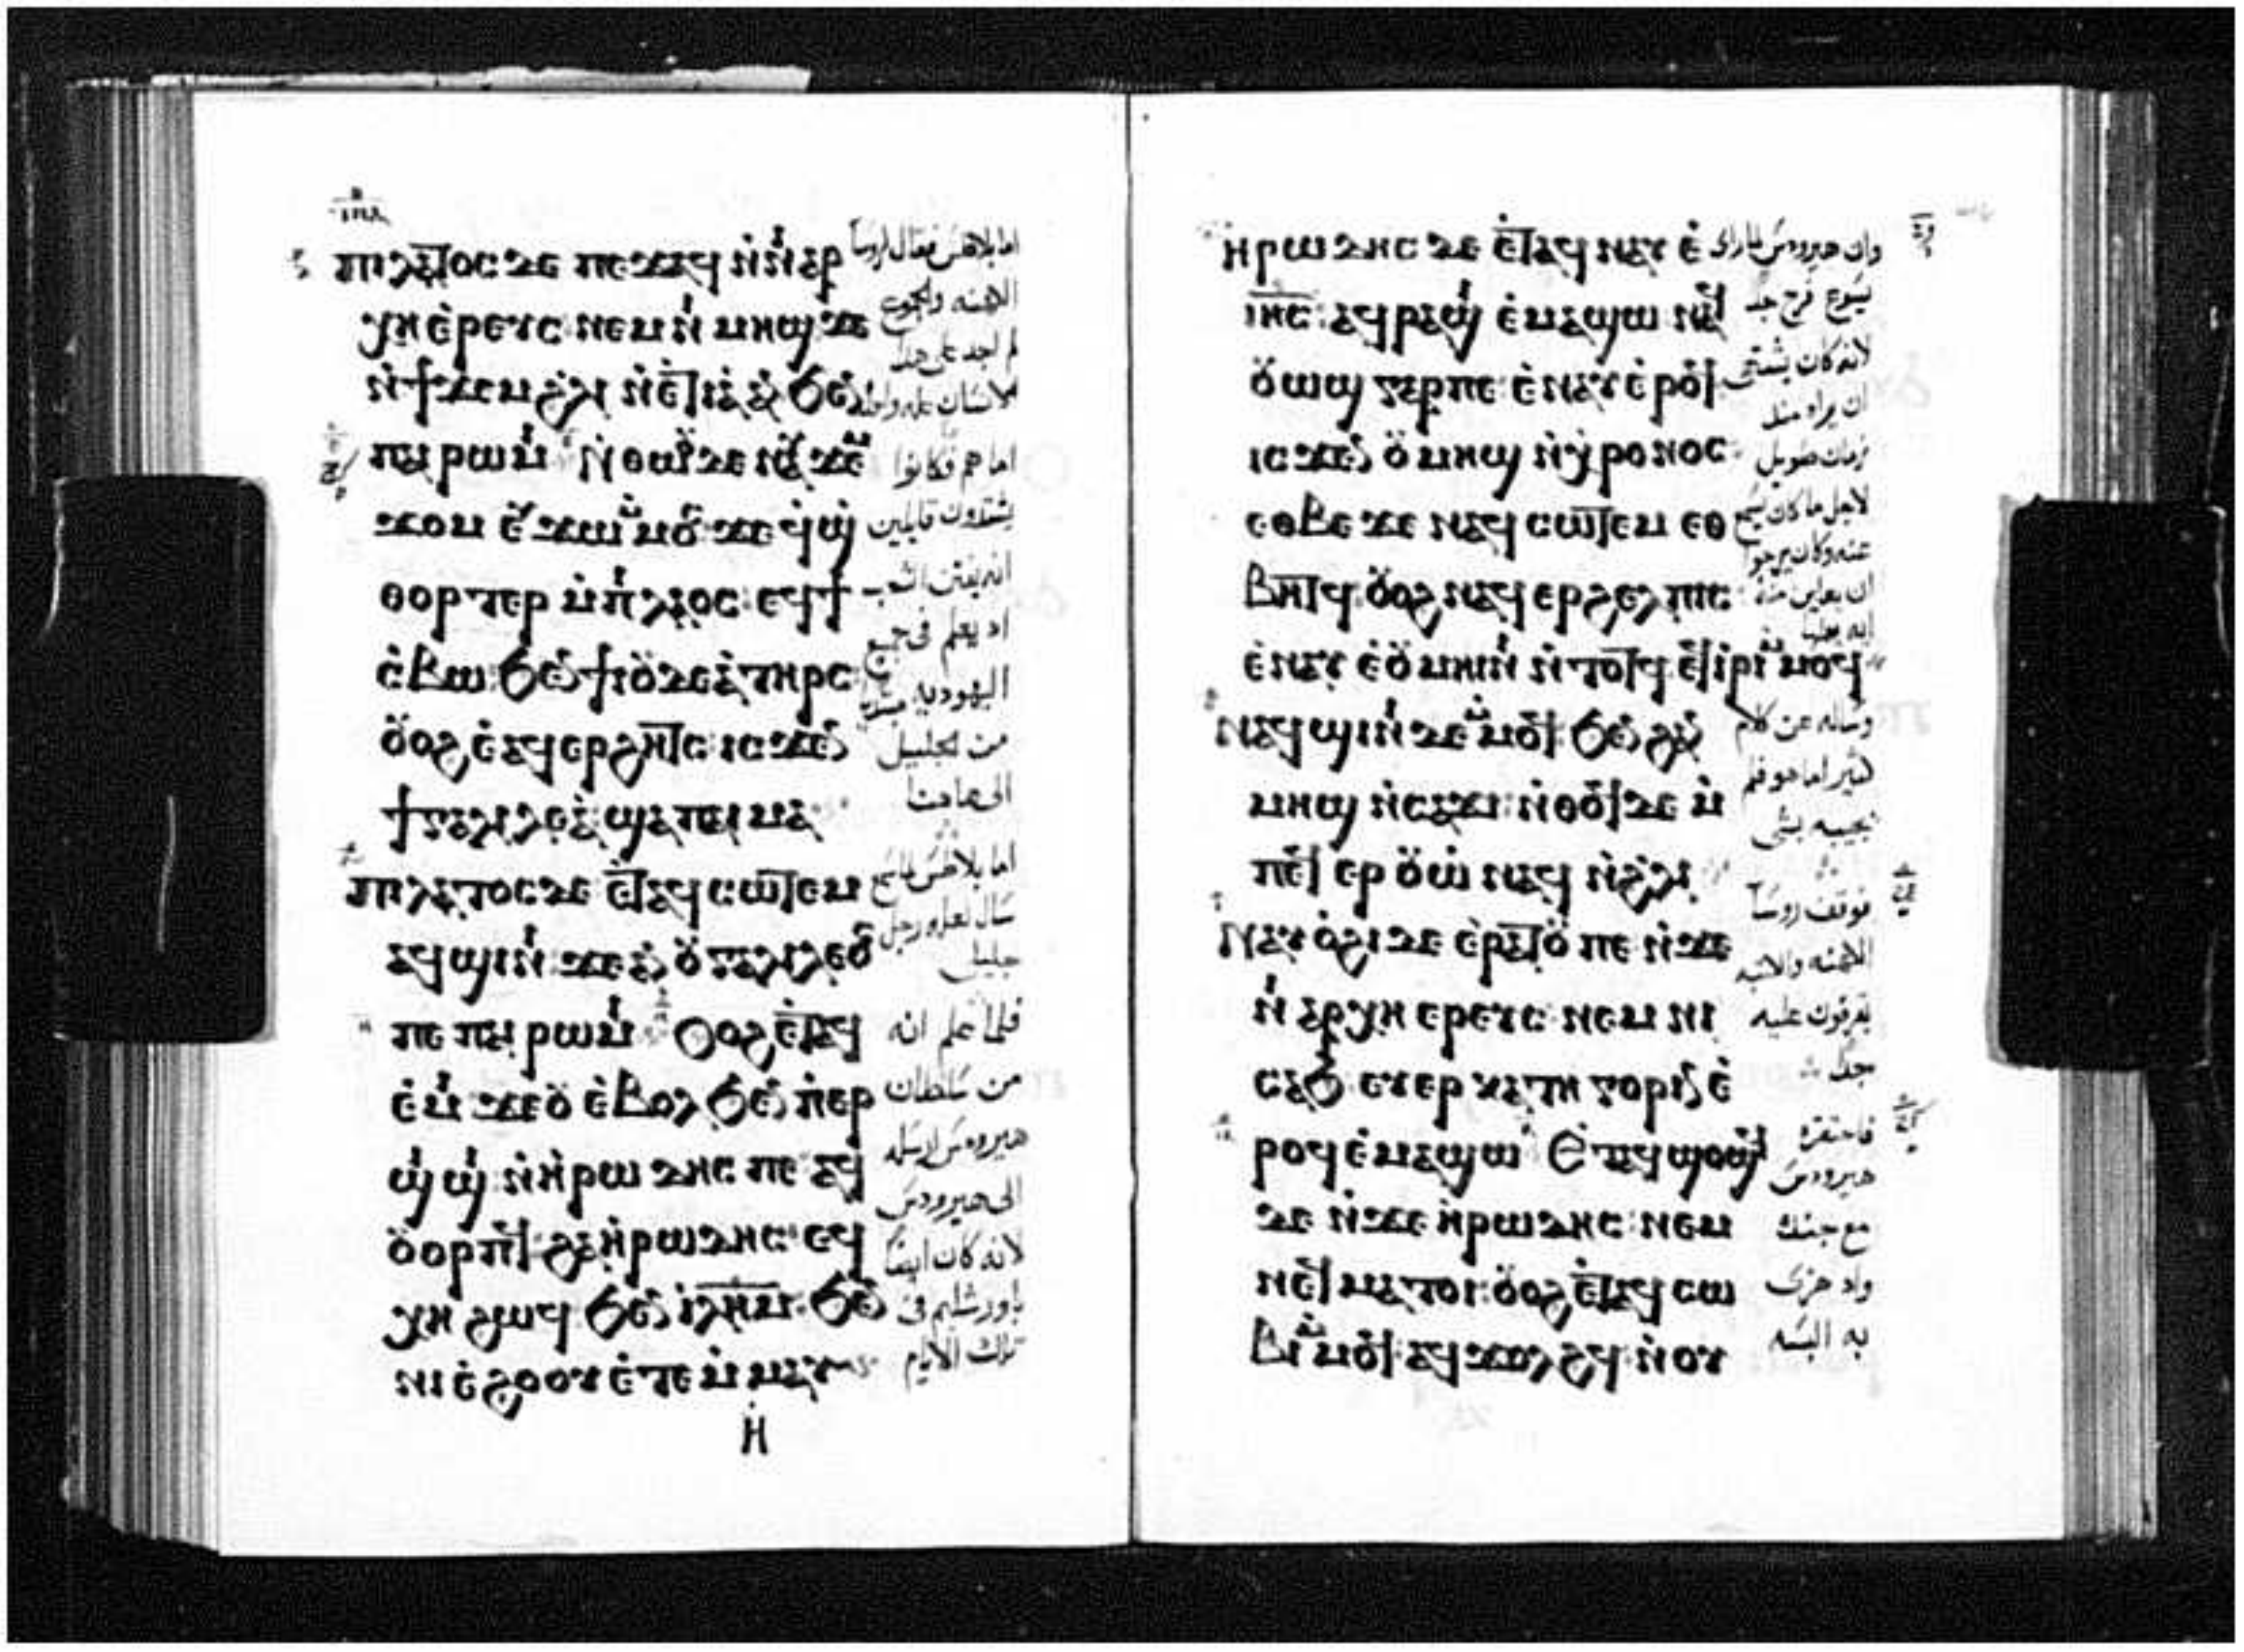 ⲡⲓⲗⲁⲧⲟⲥ ⲇⲉ ⲡⲉϫⲁϥ ⲛ̀ⲛⲓⲁⲣ
ⲭⲏⲉ̀ⲣⲉⲩⲥ ⲛⲉⲙ ⲛⲓⲙⲏϣ ϫⲉ
ⲛ̀ϯϫⲉⲙ ϩ̀ⲗⲓ ⲛ̀ⲉⲧⲓⲁ̀ ⲁⲛ ϧⲉⲛ
ⲡⲁⲓⲣⲱⲙⲓ Ⲛ̀ⲑⲱⲟⲩ ⲇⲉ ⲛⲁⲩϫⲉⲙ
ϫⲟⲙ ⲉⲩϫⲱ ⲙ̀ⲙⲟⲥ ϫⲉ ϥ̀ϣ
ⲑⲟⲣⲧⲉⲣ ⲙ̀ⲡⲓⲗⲁⲟⲥ ⲉϥϯ
ⲥ̀ⲃⲱ ϧⲉⲛ ϯⲓⲟⲩⲇⲉⲁ̀ ⲧⲏⲣⲥ
ⲟⲩⲟϩ ⲉ̀ⲁϥⲉⲣϩⲏⲧⲥ ⲓⲥϫⲉⲛ
ϯⲅⲁⲗⲓⲗⲉⲁ̀ ϣⲁ ⲡⲁⲓⲙⲁ
ⲡⲓⲗⲁⲧⲟⲥ ⲇⲉ ⲉⲧⲁϥⲥⲱⲧⲉⲙ
ⲁϥϣⲓⲛⲓ ϫⲉ ⲁⲛ ⲟⲩⲅⲁⲗⲓⲗⲉⲟⲥ
ⲡⲉ ⲡⲁⲓⲣⲱⲙⲓ Ⲟⲩⲟϩ ⲉⲧⲁϥ
ⲉ̀ⲙⲓ ϫⲉ ⲟⲩⲉ̀ⲃⲟⲗ ϧⲉⲛ ⲡ̀ⲉⲣ
ϣⲓϣⲓ ⲛ̀ⲏ̀ⲣⲱⲇⲏⲥ ⲡⲉ ⲁϥ
ⲟⲩⲟⲣⲡϥ ϩⲁ ⲏ̀ⲣⲱⲇⲏⲥ ⲉϥ
ⲭⲏ ϩⲱϥ ϧⲉⲛ ⲓⲗⲏⲙ ϧⲉⲛ
ⲛⲓⲉ̀ϩⲟⲟⲩ ⲉ̀ⲧⲉⲙ̀ⲙⲁⲩ
اما بلاطس فقال لروسا
الكهنه والجموع
لم اجد على هذا
الانسان عله واحده
اما هم فكانوا
يشتدون قايلين
انه يفتن الشعب
اذ يعلم في جميع
اليهوديه مبتدا
من الجليل
الى هاهنا
اما بلاطس لما سمع
سال لعله رجل
جليلي
فلما علم انه
من سلطان
هيرودس ارسله
الى هيرودس
لانه كان ايضا
باورشليم في
تلك الايام
ⲏ̀ⲣⲱⲇⲏⲥ ⲇⲉ ⲉⲧⲁϥⲛⲁⲩ ⲉ̀
ⲓⲏⲥ ⲁϥⲣⲁϣⲓ ⲉ̀ⲙⲁϣⲱ ⲛⲁϥ
ⲟⲩⲱϣ ⲅⲁⲣ ⲡⲉ ⲉ̀ⲛⲁⲩ ⲉ̀ⲣⲟϥ
ⲓⲥϫⲉⲛ ⲟⲩⲙⲏϣ ⲛ̀ⲭⲣⲟⲛⲟⲥ
ⲉⲑⲃⲉ ϫⲉ ⲛⲁϥⲥⲱⲧⲉⲙ ⲉⲑ
ⲃⲏⲧϥ ⲟⲩⲟϩ ⲛⲁϥⲉⲣϩⲉⲗⲡⲓⲥ
ⲉ̀ⲛⲁⲩ ⲉ̀ⲟⲩⲙⲏⲓⲛⲓ ⲛ̀ⲧⲟⲧϥ ⲉϥⲓⲣⲓ ⲙ̀ⲙⲟϥ
ⲛⲁϥϣⲓⲛⲓ ⲇⲉ ⲙ̀ⲙⲟϥ ϧⲉⲛ ϩⲁⲛ
ⲙⲏϣ ⲛ̀ⲥⲁϫⲓ ⲛ̀ⲑⲟϥ ⲇⲉ ⲙ̀
ⲡⲉϥⲉⲣⲟⲩⲱ̀ ⲛⲁϥ ⲛ̀ϩ̀ⲗⲓ
Ⲛⲁⲩⲟ̀ϩⲓ ⲇⲉ ⲉ̀ⲣⲁⲧⲟⲩ ⲡⲉ ⲛ̀ϫⲉ
ⲛⲓⲁⲣⲭⲏⲉⲣⲉⲩⲥ ⲛⲉⲙ ⲛⲓ
ⲥⲁϧ ⲉⲩⲉⲣⲕⲁⲧⲏⲅⲟⲣⲓⲛ ⲉ̀
ⲣⲟϥ ⲉ̀ⲙⲁϣⲱ Ⲉⲧⲁϥϣⲟϣϥ
ⲇⲉ ⲛ̀ϫⲉ ⲏ̀ⲣⲱⲇⲏⲥ ⲛⲉⲙ
ⲛⲉϥⲙⲁⲧⲟⲓ ⲟⲩⲟϩ ⲉⲧⲁϥⲥⲱ
ⲃⲓ ⲙ̀ⲙⲟϥ ⲁϥϫⲟⲗϩϥ ⲛ̀ⲟⲩ
وان هيرودس لما راى
يسوع فرح جدا
لانه كان يشتهي
ان يراه منذ
زمان طويل
لاجل ما كان يسمع
عنه وكان يرجوا
ان يعاين منه
ايه يعملها
وساله عن كلام
كثير اما هو فلم
يجيبه بشي
فوقف روسا
الكهنه والكتبه
يقرفون عليه
جدا
فاحتقره
هيرودس
مع جنده
واذ هزى
به البسه